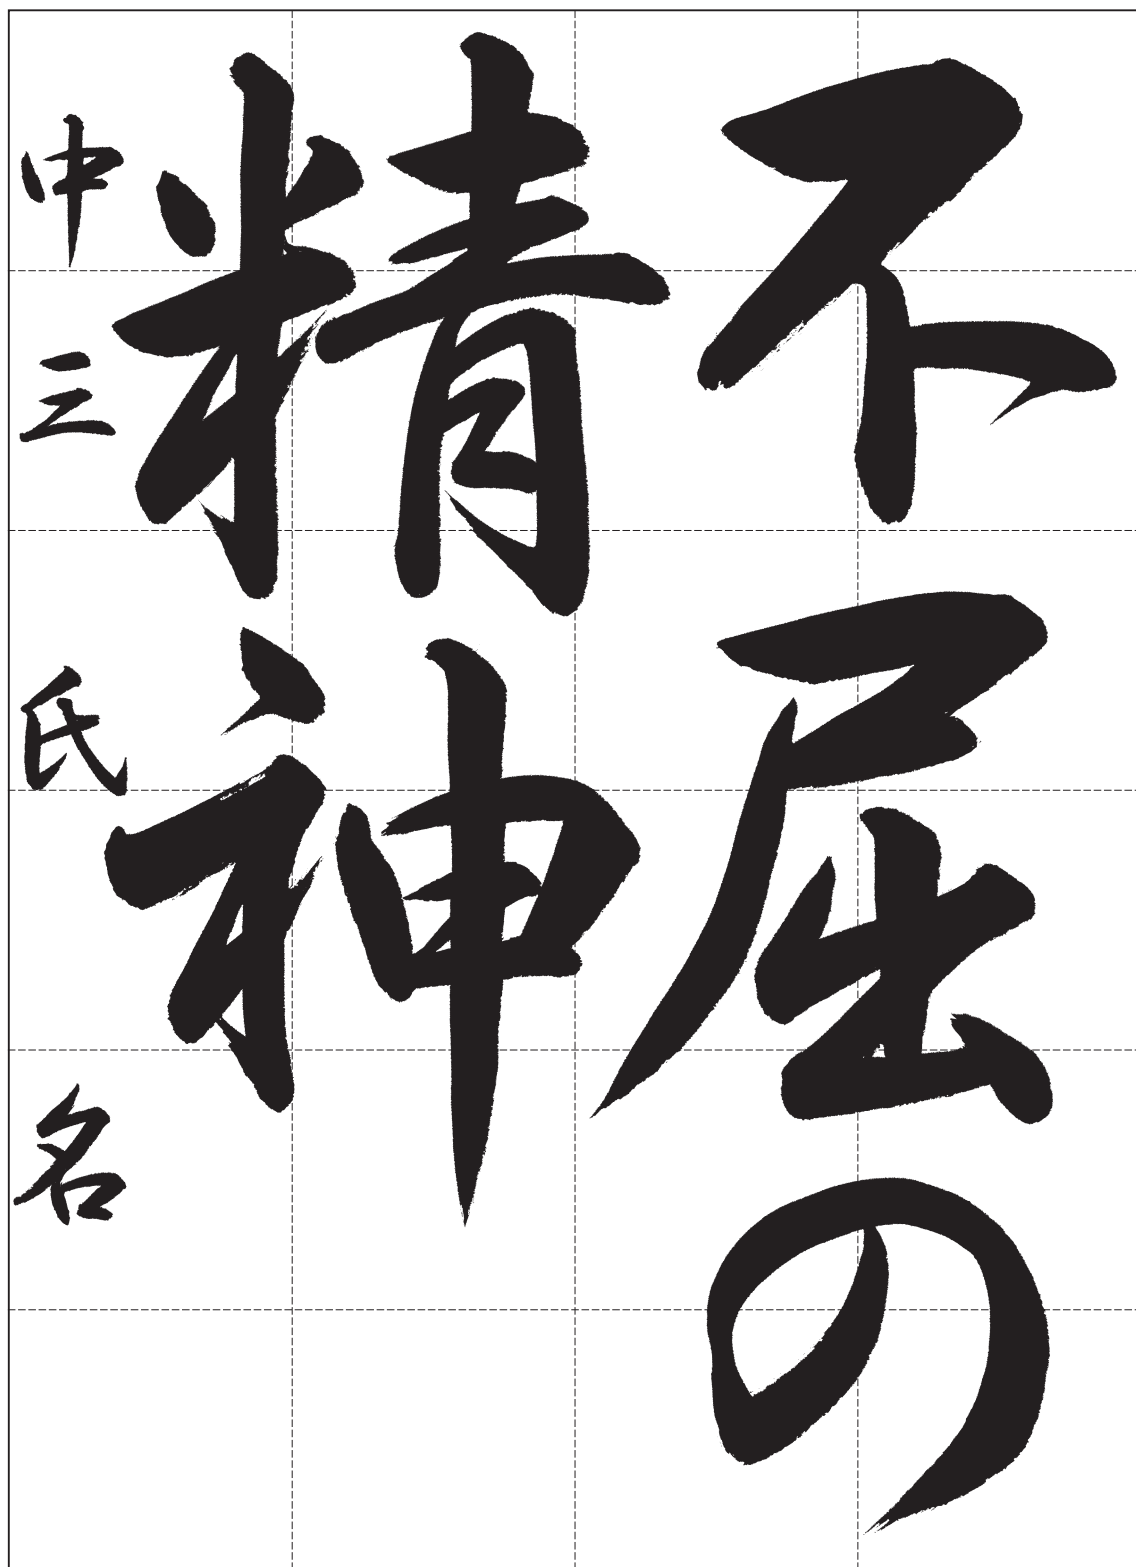 不屈の
精神
中三 氏名